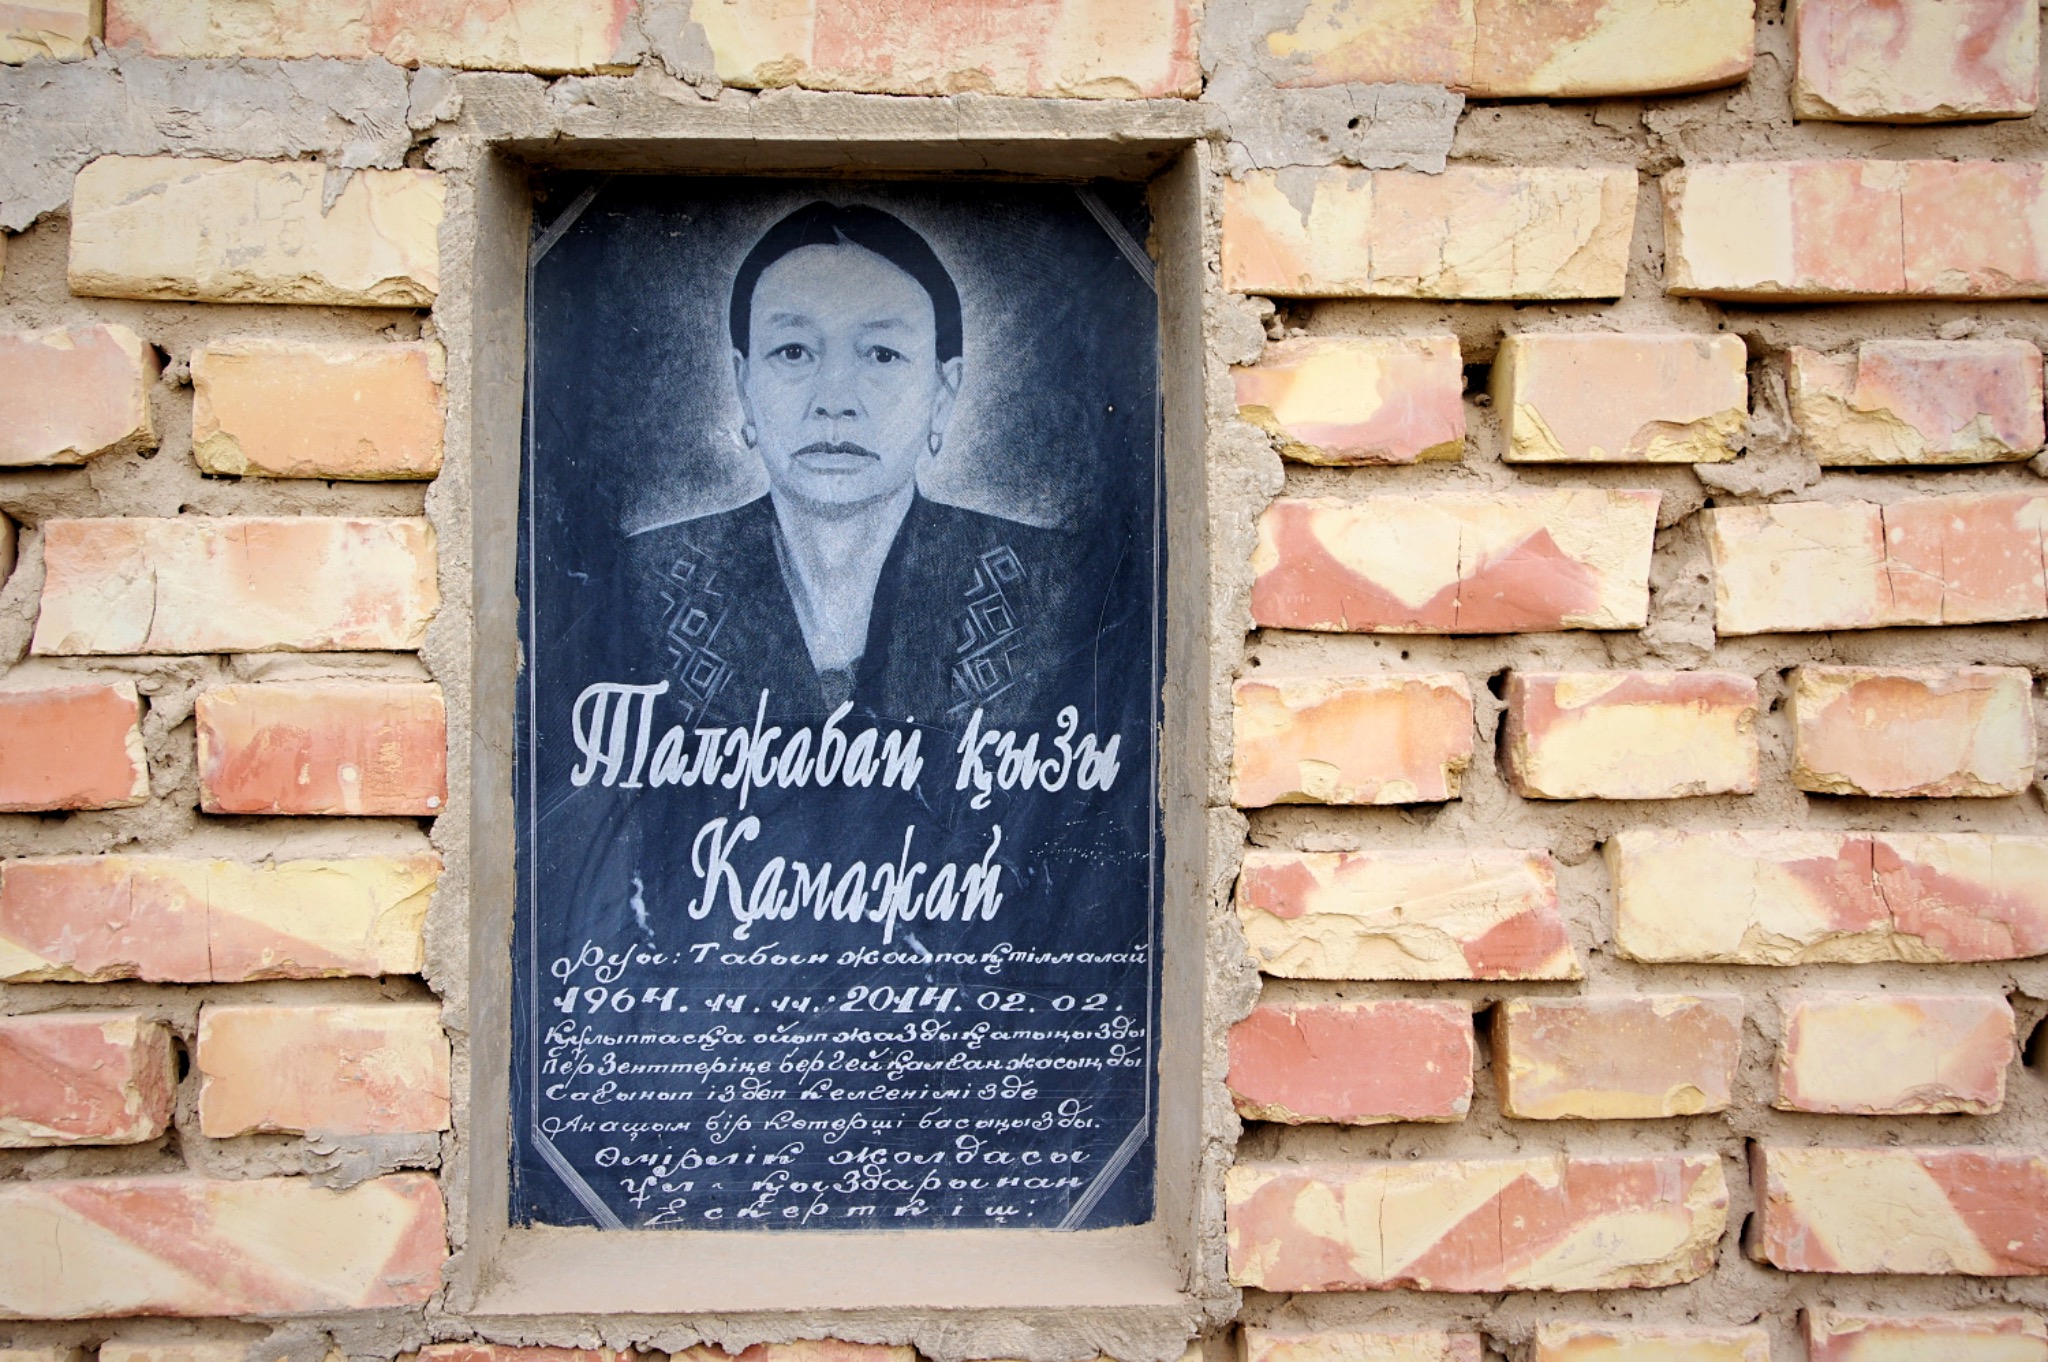 Талжабай қызы
Қамажай
Руы: Табын жалпақтілмалай
1964. 11. 11.: 2014. 02. 02.
Құлыптасқа ойып жаздық атыңызды
Перзенттеріңе бергей қалған жасыңды
Сағынып іздеп келгенімізде
Анашым бір көтерші басыңызды.
Өмірлік жолдасы
Ұл - қыздарынан
Ескерткіш: